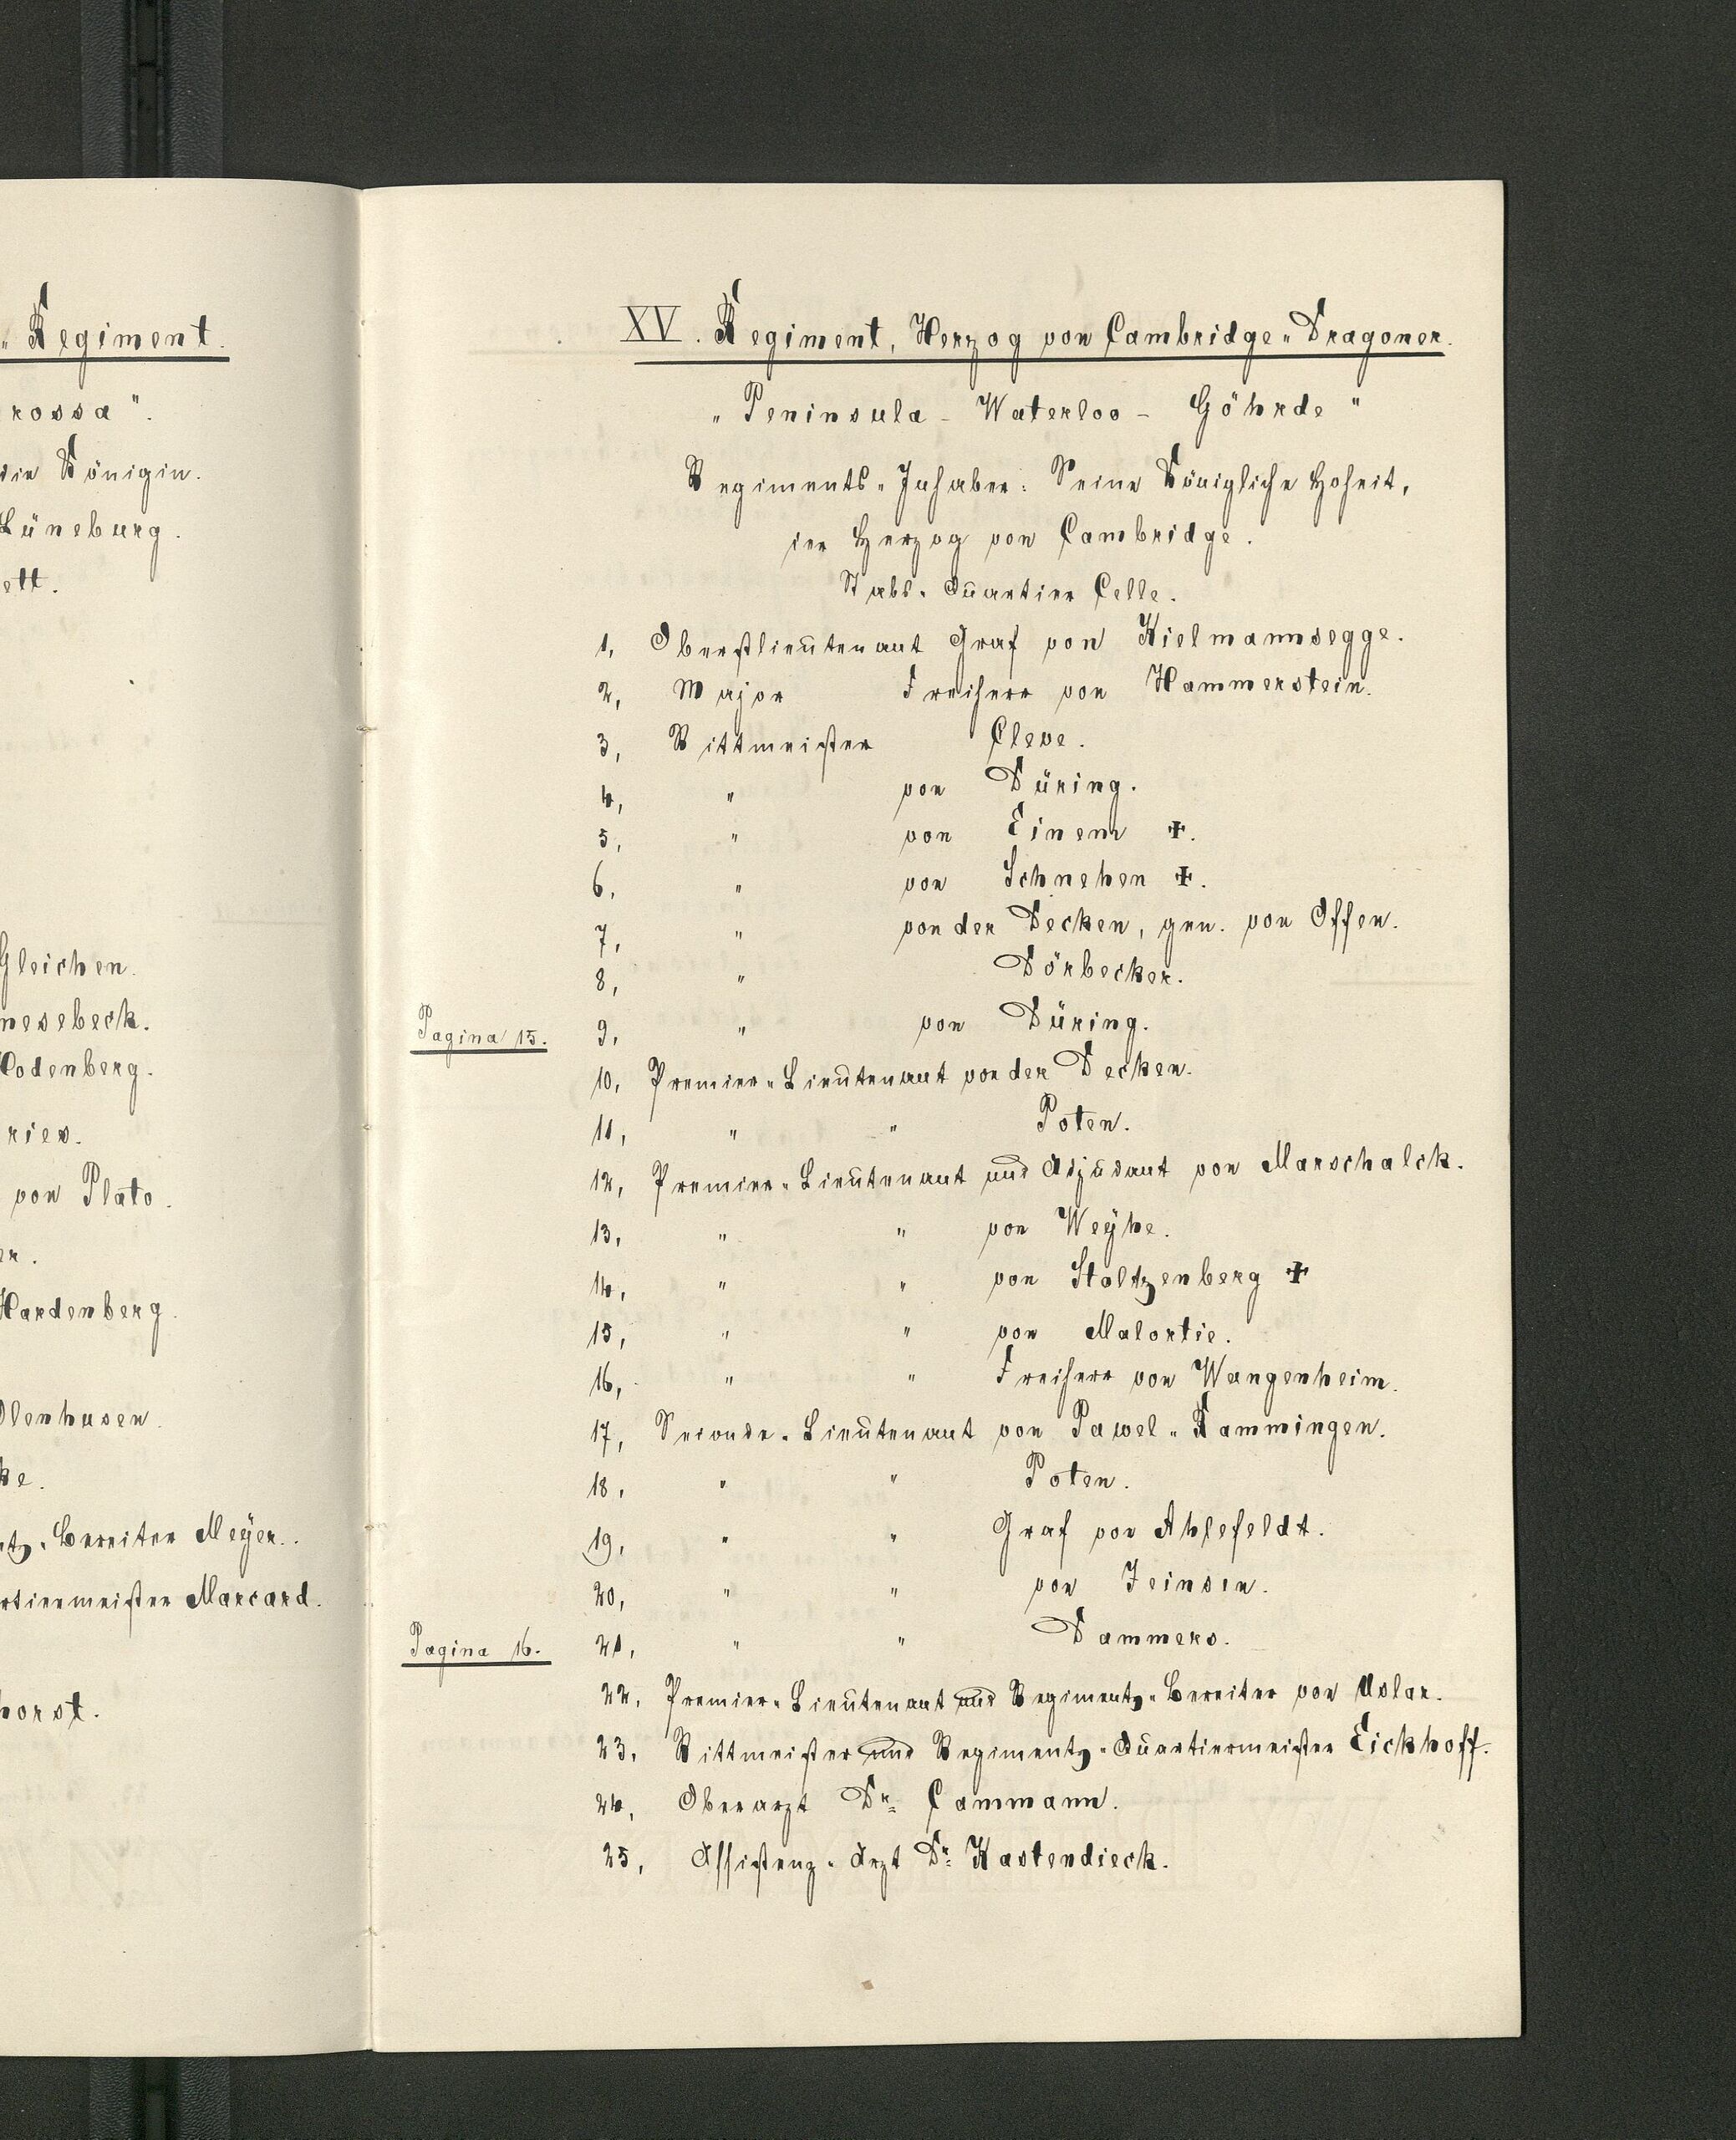 Regiment.
rossa".
die Königin.
Lüneburg.
ett.
Gleichen.
nesebeck.
Hodenberg.
ries.
von Plato.
er.
Hardenberg.
Olenhusen.
ke.
Bereiter Meÿer.
rtiermeister Marcard.
horst.
XV. Regiment, Herzog von Cambridge-Dragoner.
"Peninsula - Waterloo - Göhrde"
Regiments-Inhaber: Seine Königliche Hoheit,
der Herzog von Cambridge.
Stabs-Quartier Celle.
1, Oberstlieutenant Graf von Kielmannsegge.
2, Major Freiherr von Hammerstein.
3, Rittmeister Cleve.
4, " von Düring.
5, " von Einem ✝.
6, " von Schnehen ✝.
7, " von der Decken, gen. von Offen.
8, " Dörbecker.
Pagina 15. 9, " von Düring.
10, Premier-Lieutenant von der Decken.
11, " " Poten.
12, Premier-Lieutenant und Adjudant von Marschalck.
13, " " von Weÿhe.
14, " " von Stoltzenberg ✝
15, " " von Malortie.
16, " " Freiherr von Wangenheim.
17, Seconde-Lieutenant von Pawel-Rammingen.
18, " " Poten.
19, " " Graf von Ahlefeldt.
20, " " von Jeinsen.
Pagina 16. 21, " " Dammers.
22, Premier-Lieutenant und Regiments-Bereiter von Uslar.
23, Rittmeister und Regiments-Quartiermeister Eickhoff.
24, Oberarzt Dr. Cammann.
25, Assistenz-Arzt Dr. Kastendieck.